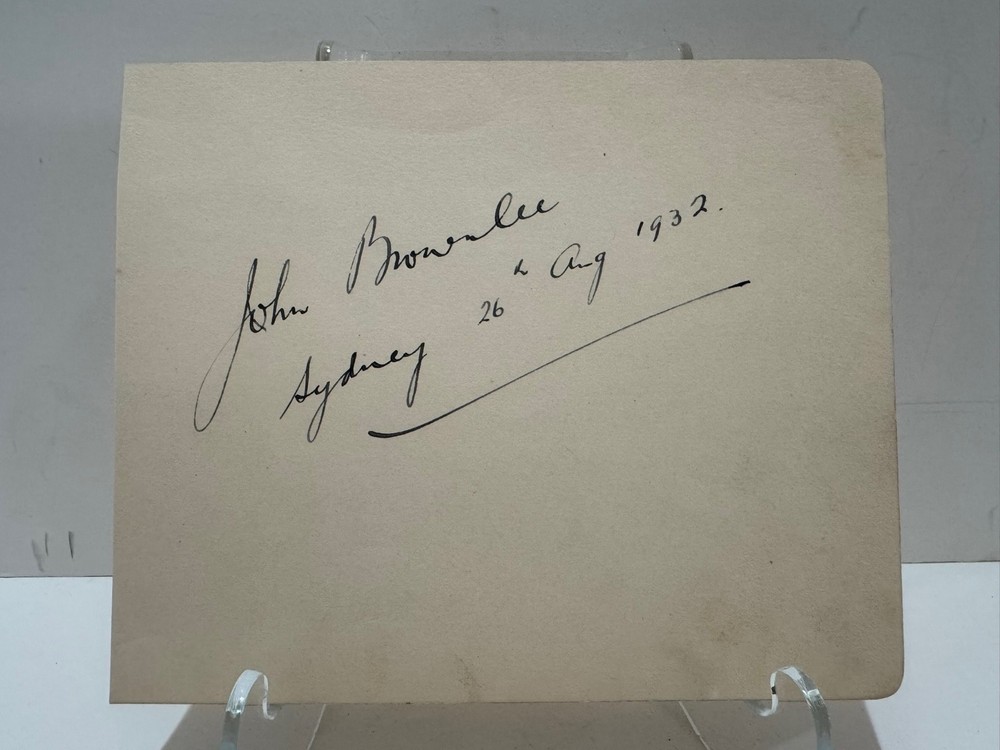 John Brownlee
Sydney 26th Aug 1932.